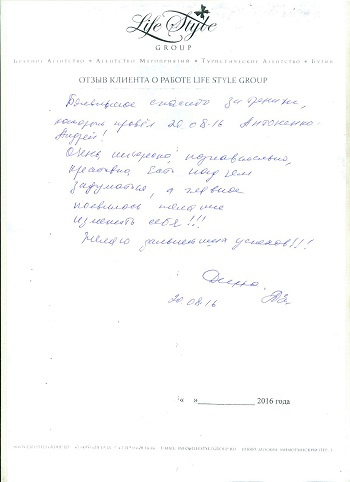 Life Style
GROUP
Бизнес Агентство • Агентство Мероприятий • Туристическое Агентство • Бутик
ОТЗЫВ КЛИЕНТА О РАБОТЕ LIFE STYLE GROUP
Большое спасибо за тренинг,
который провёл 20.08.16 Антоненко
Андрей!
Очень интересно, познавательно,
креативно. Есть над чем
задуматься, а главное
появилось желание
изменить себя!!!
Желаю дальнейших успехов!!!
20.08.16
« » 2016 года